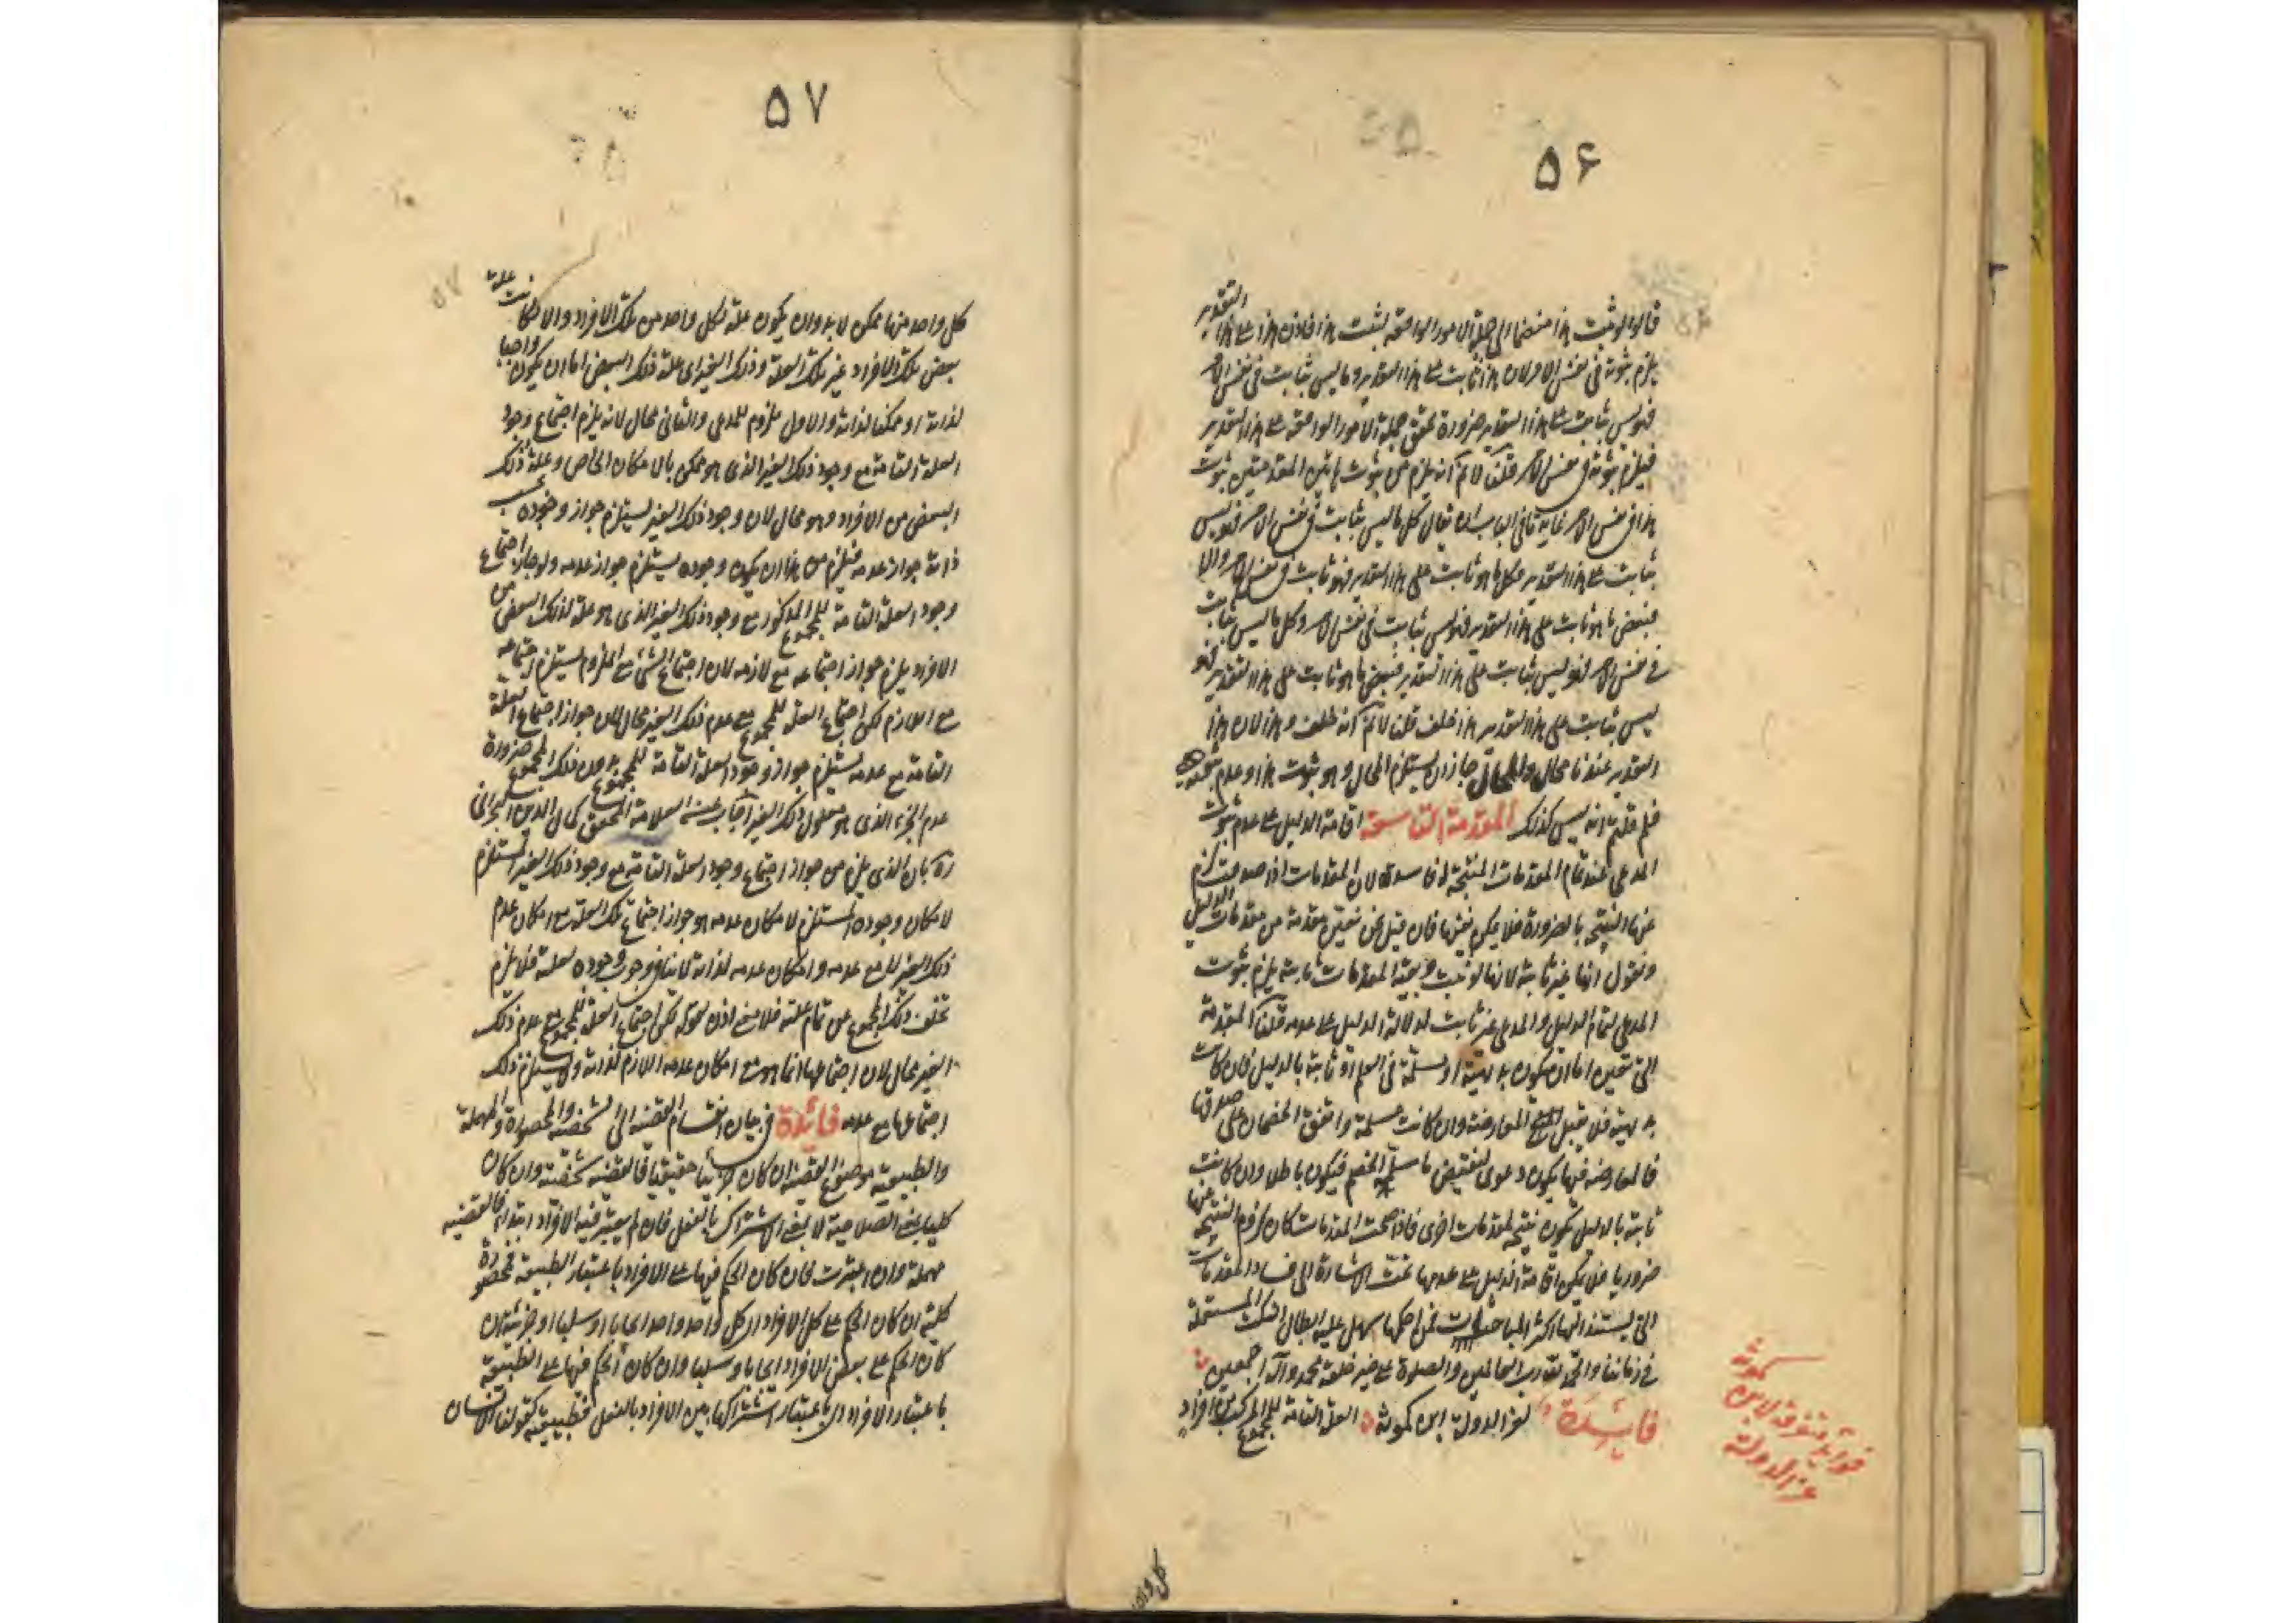 ٥۶
قالوا لو ثبت هذا منضما الى جملة الامور الواقعة لثبت هذا فاذن هذا على هذا التقدير
يلزم ثبوته فى نفس الامر لان هذا ثابت على هذا التقدير وما ليس بثابت فى نفس الامر
فهو ليس بثابت على هذا التقدير ضرورة تحقق جملة الامور الواقعة على هذا التقدير
فيلزم ثبوته فى نفس الامر قلنا لا نم انه يلزم من ثبوت هاتين المقدمتين ثبوت
هذا فى نفس الامر غاية ما فى الباب ان يقال كل ما ليس بثابت فى نفس الامر فهو ليس
بثابت على هذا التقدير فكل ما هو ثابت على هذا التقدير فهو ثابت فى نفس الامر والا
فبعض ما هو ثابت على هذا التقدير فهو ليس بثابت فى نفس الامر وكل ما ليس بثابت
فى نفس الامر فهو ليس بثابت على هذا التقدير فبعض ما هو ثابت على هذا التقدير فهو
ليس بثابت على هذا التقدير هذا خلف قلنا لا نم انه خلف وهذا لان هذا
التقدير عندنا محال والمحال جاز ان يستلزم المحال وهو ثبوت هذا وعدم ثبوته
فلم قلتم انه ليس كذلك المقدمة التاسعة اقامة الدليل على عدم ثبوت
المدعى عند تمام المقدمات المنتجة له فاسدة لان المقدمات اذا صدقت لزم
عنها النتيجة بالضرورة فلا يمكن نفيها فان قيل نحن نعين مقدمة من مقدمات الدليل
ونقول انها غير ثابتة لانها لو ثبتت وبقية المقدمات ثابتة يلزم ثبوت
المدعى لتمام الدليل والمدعى غير ثابت لدلالة الدليل على عدمه قلنا المقدمة
التى تعين اما ان تكون بديهية او مسلمة فى العلم او ثابتة بالدليل فان كانت
بديهية فلا تقبل المعارضة وان كانت مسلمة واتفق الخصمان على صدقها
فالمعارضة فيها يكون دعوى لنقيض ما سلم الخصم فيكون باطلا وان كانت
ثابتة بالدليل تكون نتيجة لمقدمات اخرى فاذا صحت المقدمات كان لزوم النتيجة عنها
ضروريا فلا يمكن اقامة الدليل على عدمها تمت الاشارة الى فساد المقدمات
التى يستند اليها اكثر المباحثات فمن احكمها سهل عليه ابطال النكت المستعملة
فى زماننا والحمد لله رب العالمين والصلوة على خير خلقه محمد وآله اجمعين
فائدة لعز الدولة ابن كمونة العلة التامة للمجموع المركب من افراد
فوائد متفرقة لابن كمونة
عز الدولة
كل واحد
٥٧
كل واحد منها ممكن لا بد وان يكون علة لكل واحد من تلك الافراد والا كانت علة
بعض تلك الافراد غير تلك العلة وذلك الغير اى علة ذلك البعض اما ان يكون واجبا
لذاته او ممكنا لذاته والاول ملزوم للمدعى والثانى محال لانه يلزم اجتماع وجود
العلة التامة مع وجود ذلك الغير الذى هو ممكن بالامكان الخاص وعلة ذلك
البعض من الافراد وهو محال لان وجود ذلك الغير يستلزم جواز وجوده بحسب
ذاته جواز عدمه فيلزم من هذا ان يكون وجوده يستلزم جواز عدمه ولو جاز اجتماع
وجود العلة التامة للمجموع المذكور مع وجود ذلك الغير الذى هو علة لذلك البعض من
الافراد يلزم جواز اجتماعه مع لازمه لان اجتماع الشئ مع الملزوم يستلزم اجتماعه
مع اللازم لكن اجتماع العلة للمجموع مع عدم ذلك الغير محال لان جواز اجتماع العلة
التامة مع عدمه يستلزم جواز وجود العلة التامة للمجموع بدون ذلك المجموع ضرورة
عدم الجزء الذى هو معلول ذلك الغير اجاب عنه العلامة المحقق كمال الدين البحرانى
ره بان الذى يلزم من جواز اجتماع وجود العلة التامة مع وجود ذلك الغير المستلزم
لامكان وجوده المستلزم لامكان عدمه هو جواز اجتماع تلك العلة مع امكان عدم
ذلك الغير لا مع عدمه وامكان عدمه لذاته لا ينافى وجوب وجوده بعلته فلا يلزم
تخلف ذلك المجموع عن تمام علته فلا يصح اذن قوله لكن اجتماع العلة للمجموع مع عدم ذلك
الغير محال لان اجتماعها انما هو مع امكان عدمه اللازم لذاته ولا يستلزم ذلك
اجتماعها مع عدمه فائدة فى بيان انقسام القضية الى الشخصية والمحصورة والمهملة
والطبيعية موضوع القضية ان كان جزئيا حقيقيا فالقضية شخصية وان كان
كليا بمعنى الصلاحية لا بمعنى الاشتراك بالفعل فان لم يعتبر فيه الافراد ابتداء فالقضية
مهملة وان اعتبرت فان كان الحكم فيها على الافراد باعتبار الطبيعة فمحصورة
كلية ان كان الحكم على كل الافراد اى كل واحد واحد ايجابا او سلبا او جزئية ان
كان الحكم على بعض الافراد ايجابا وسلبا وان كان الحكم فيها على الطبيعة
باعتبار الافراد اى باعتبار اشتراكها بين الافراد بالفعل فطبيعية كقولنا الانسان